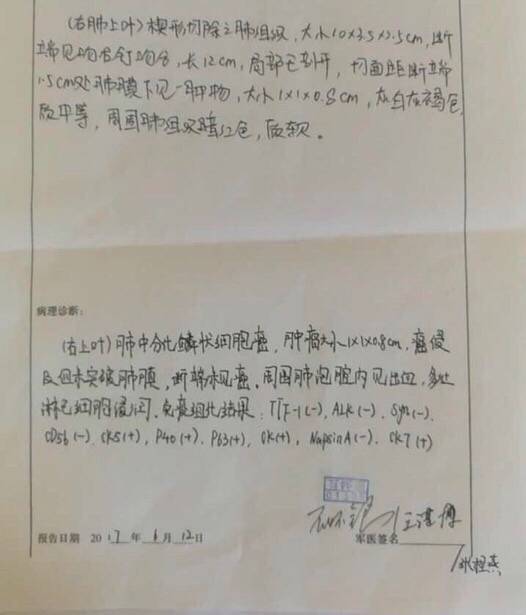 (右肺上叶)楔形切除之肺组织,大小10×3.5×2.5cm,断
端见吻合钉吻合,长12cm,局部已剖开,切面距断端
1.5cm处肺膜下见一肿物,大小1×1×0.8cm,灰白灰褐色,
质中等,周围肺组织暗红色,质软。
病理诊断:
(右上叶)肺中分化鳞状细胞癌,肿瘤大小1×1×0.8cm,癌侵
及但未突破肺膜,断端未见癌。周围肺泡腔内见出血,多灶
淋巴细胞浸润。免疫组化结果:TTF-1(-), ALK(-), Syn(-),
CD56(-), CK5(+), P40(+), P63(+), CK(+), NapsinA(-), CK7(+)
报告日期 2017年6月12日 军医签名